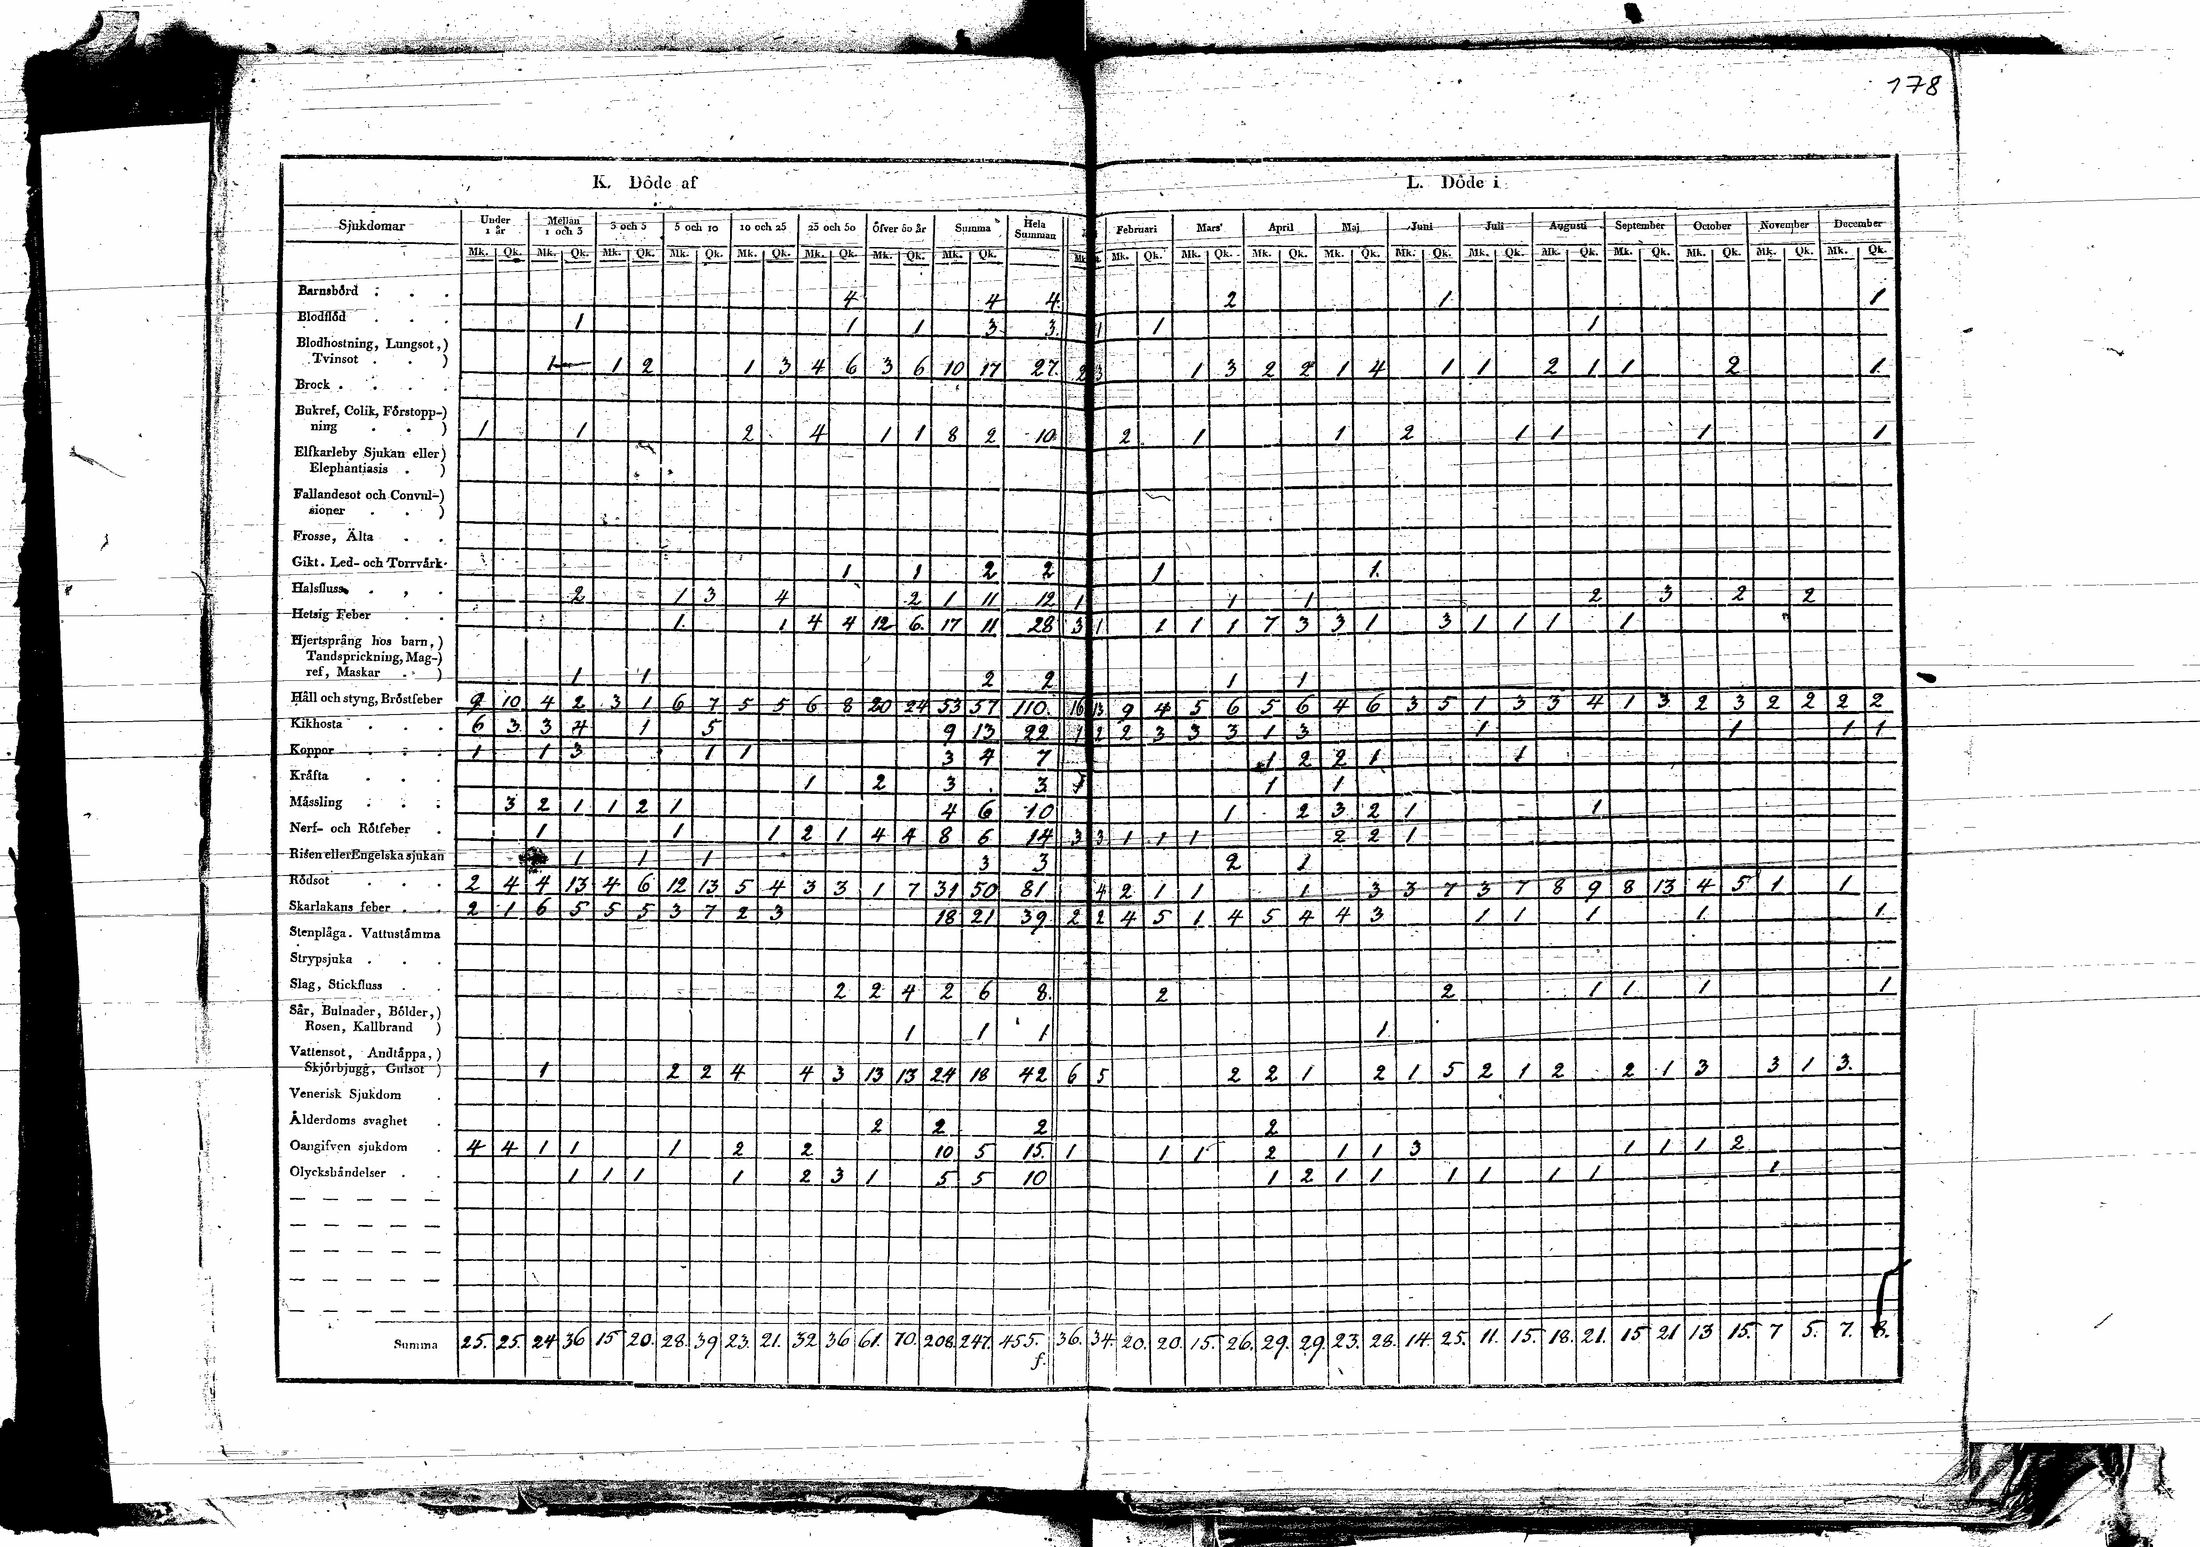 178
K. Döde af
L. Döde i
Sjukdomar Under 1 år Mellan 1 och 3 3 och 5 5 och 10 10 och 25 25 och 50 Öfver 50 år Summa Hela Summan Februari Mars April Maj Juni Juli Augusti September October November December
Mk. Qk. Mk. Qk. Mk. Qk. Mk. Qk. Mk. Qk. Mk. Qk. Mk. Qk. Mk. Qk. Mk. Mk. Qk. Mk. Qk. Mk. Qk. Mk. Qk. Mk. Qk. Mk. Qk. Mk. Qk. Mk. Qk. Mk. Qk. Mk. Qk. Mk. Qk.
Barnsbörd . . . 4 4 4 2 1 1
Blodflöd . . . 1 1 1 3 3. 1 1 1
Blodhostning, Lungsot,)
Tvinsot . . ) 1 1 2 1 3 4 6 3 6 10 17 27. 2 3 1 3 2 2 1 4 1 1 2 1 1 2 1
Brock . . . .
Bukref, Colik, Förstopp-)
ning . . ) 1 1 2 4 1 1 8 2 10 2 1 1 2 1 1 1 1
Elfkarleby Sjukan eller)
Elephantiasis . )
Fallandesot och Convul-)
sioner . . )
Frosse, Älta . .
Gikt. Led- och Torrvärk. 1 1 2 2 1 1.
Halsfluss . , . 2 1 3 4 2 1 11 12 1 1 1 2 3 2 2
Hetsig Feber . . 1 1 4 4 12 6. 17 11 28 3 1 1 1 1 7 3 3 1 3 1 1 1 1
Hjertsprång hos barn,)
Tandsprickning, Mag-)
ref, Maskar . ) 1 1 2 2 1 1
Håll och styng, Bröstfeber 9 10 4 2 3 1 6 7 5 5 6 8 20 24 53 57 110. 16 13 9 4 5 6 5 6 4 6 3 5 1 3 3 4 1 3 2 3 2 2 2 2
Kikhosta . . . 6 3 3 4 1 5 9 13 22 1 2 2 3 3 3 1 3 1 1 1 1
Koppor . . . 1 1 3 1 1 3 4 7 1 2 2 1 1
Kräfta . . . 1 2 3 3 1 1 1
Mässling . . . 3 2 1 1 2 1 4 6 10 1 2 3 2 1 1
Nerf- och Rötfeber . 1 1 1 2 1 4 4 8 6 14 3 3 1 1 1 2 2 1
Risen eller Engelska sjukan 1 1 1 3 3 2 1
Rödsot . . . 2 4 4 13 4 6 12 13 5 4 3 3 1 7 31 50 81 4 2 1 1 1 3 3 7 3 7 8 9 8 13 4 5 1 1
Skarlakans feber . . 2 1 6 5 5 5 3 7 2 3 18 21 39 2 2 4 5 1 4 5 4 4 3 1 1 1 1 1
Stenplåga. Vattustämma
Strypsjuka . . .
Slag, Stickfluss . . 2 2 4 2 6 8. 2 2 1 1 1 1
Sår, Bulnader, Bölder,)
Rosen, Kallbrand ) 1 1 1 1
Vattensot, Andtäppa,)
Skjörbjugg, Gulsot ) 1 2 2 4 4 3 13 13 24 18 42 6 5 2 2 1 2 1 5 2 1 2 2 1 3 3 1 3.
Venerisk Sjukdom .
Ålderdoms svaghet . 2 2 2 2
Oangifven sjukdom . 4 4 1 1 1 2 2 10 5 15. 1 1 1 2 1 1 3 1 1 1 2
Olyckshändelser . . 1 1 1 1 2 3 1 5 5 10 1 2 1 1 1 1 1 1 1
Summa 25. 25. 24 36 15 20. 28. 39 23. 21. 32 36 61. 70. 208. 247. 455. 36. 34. 20. 20. 15. 26. 29. 29. 23. 28. 14. 25. 11. 15. 18. 21. 15 21 13 15. 7 5. 7. 8.
f.